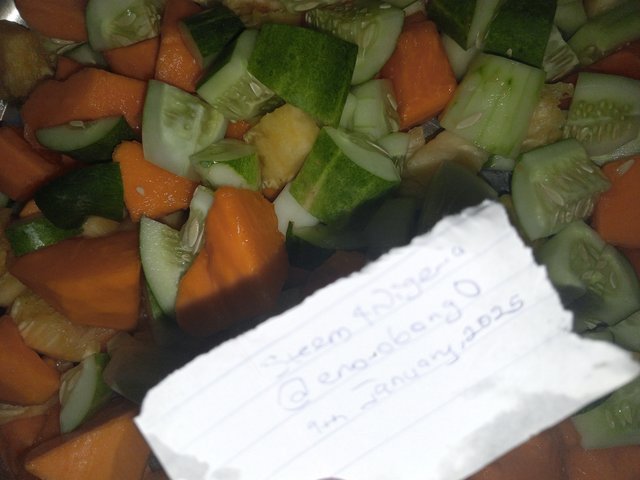 Steem 4 Nigeria
@eno-obong
9th January, 2025